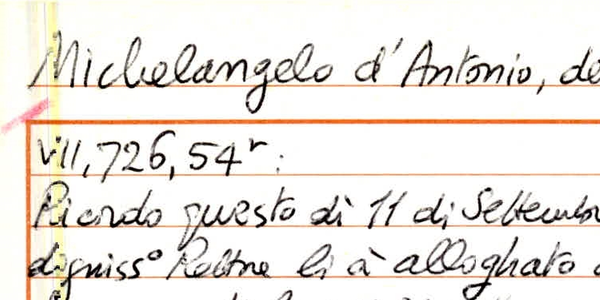 Michelangelo d'Antonio, de
VII, 726, 54r:
Ricordo questo dì 11 di Settembr
digniss° Rettore li à alloghato